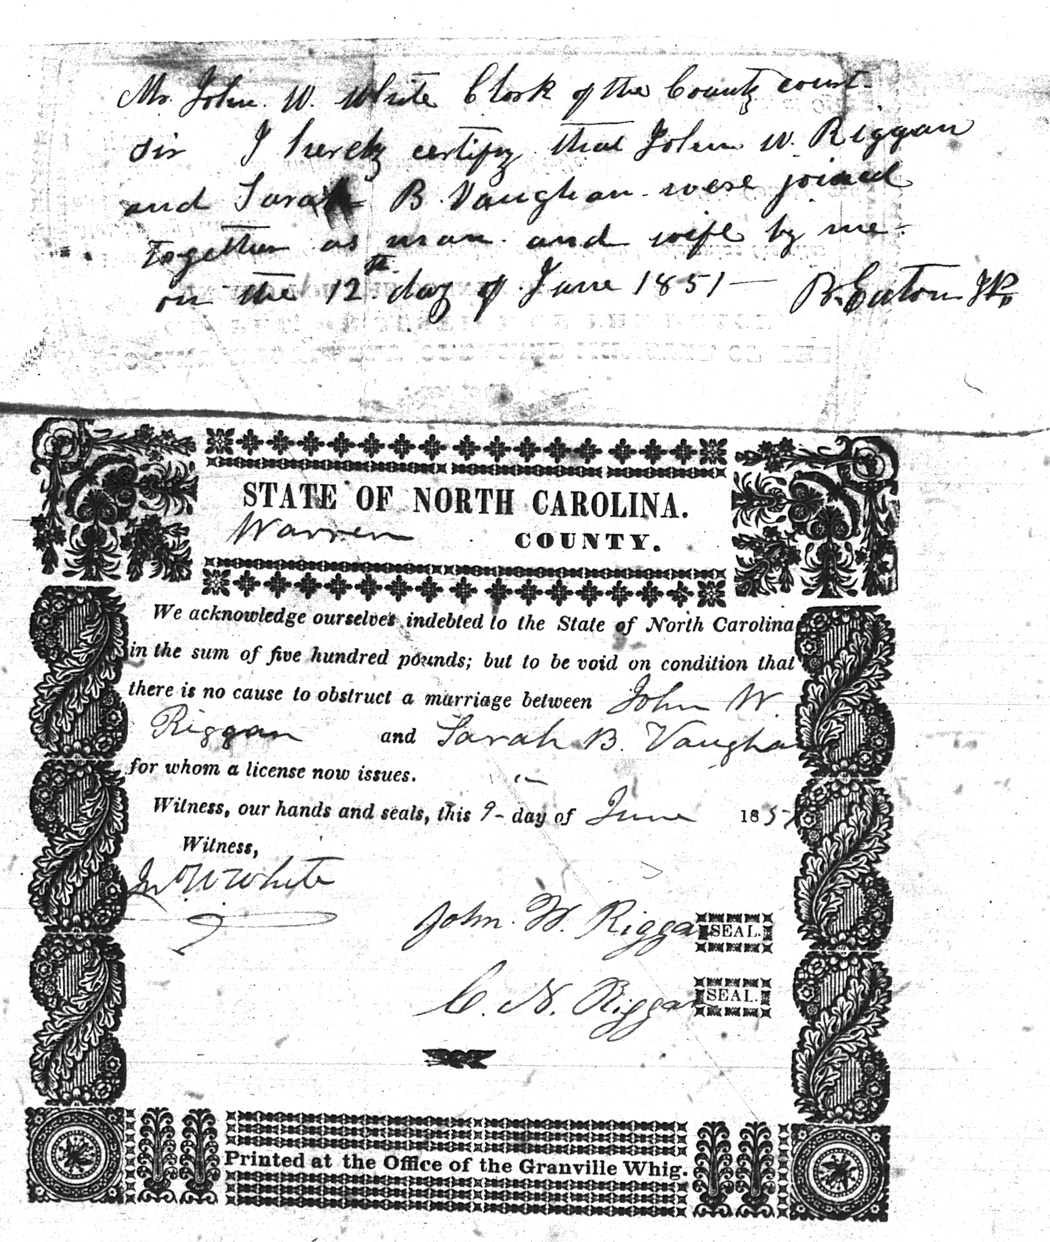 Mr. John. W. White Clork of the County court-
sir I hereby certify that John W. Riggan
and Sarah B. Vaughan were joined
together as man and wife by me-
on the 12th day of June 1851— B. Eaton JP
STATE OF NORTH CAROLINA.
Warren COUNTY.
We acknowledge ourselves indebted to the State of North Carolina
in the sum of five hundred pounds; but to be void on condition that
there is no cause to obstruct a marriage between John W.
Riggan and Sarah B. Vaughan
for whom a license now issues.
Witness, our hands and seals, this 9- day of June 1851
Witness,
Jno W White
John. W. Riggan SEAL.
C. N. Riggan SEAL.
Printed at the Office of the Granville Whig.